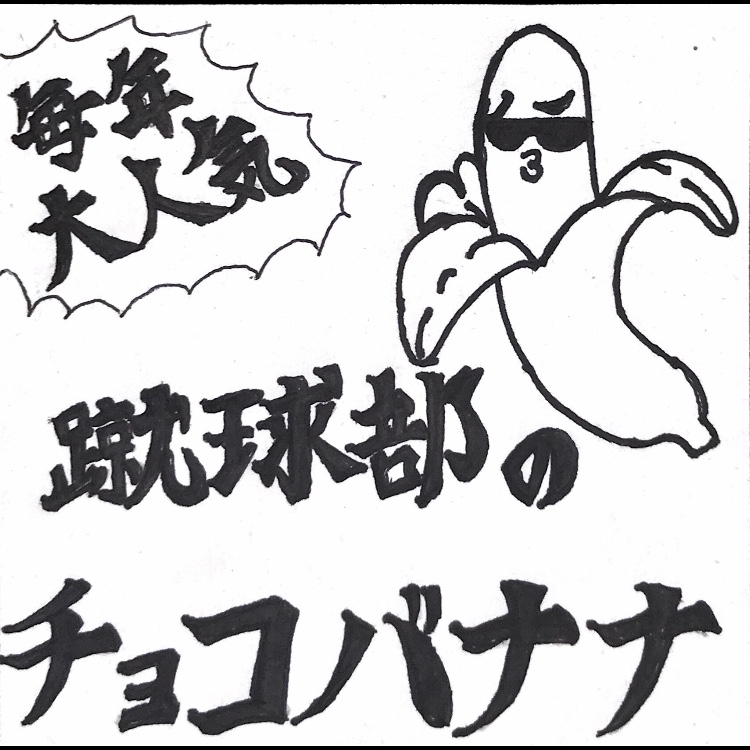 毎年
大人気
蹴球部の
チョコバナナ